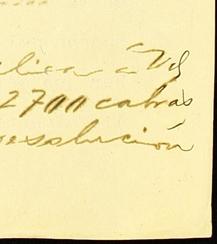 á Vd
2700 cabras
resolución